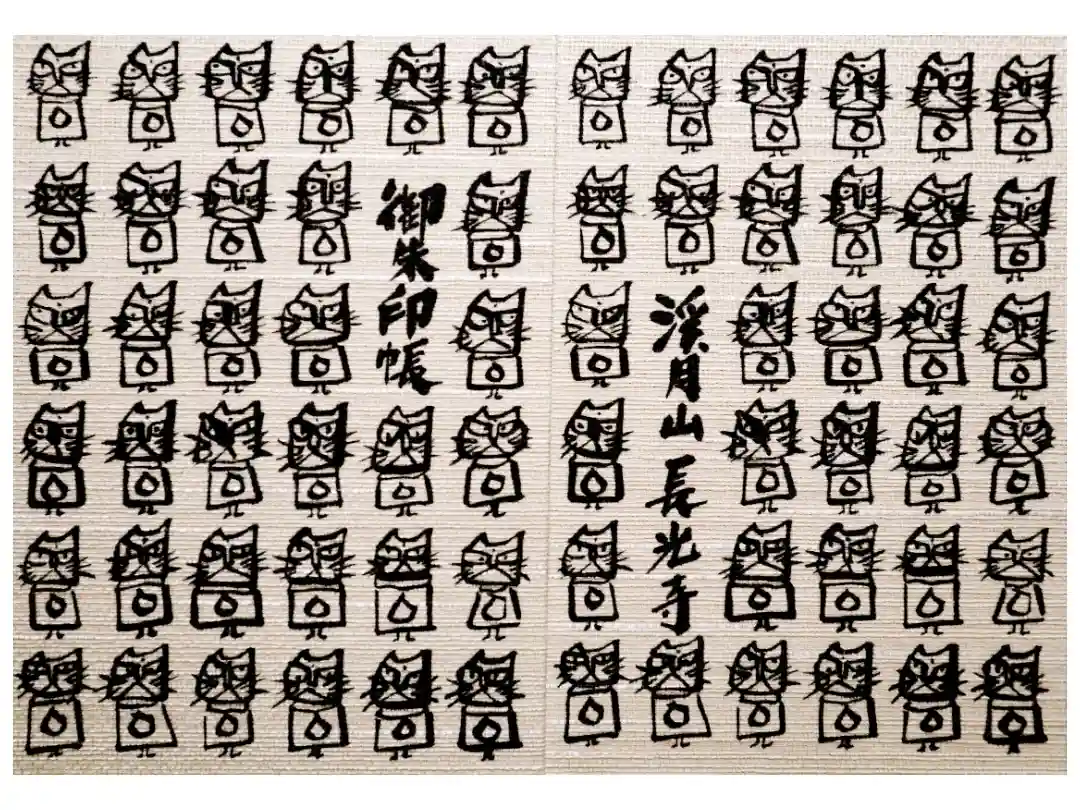 御朱印帳
溪月山 長光寺